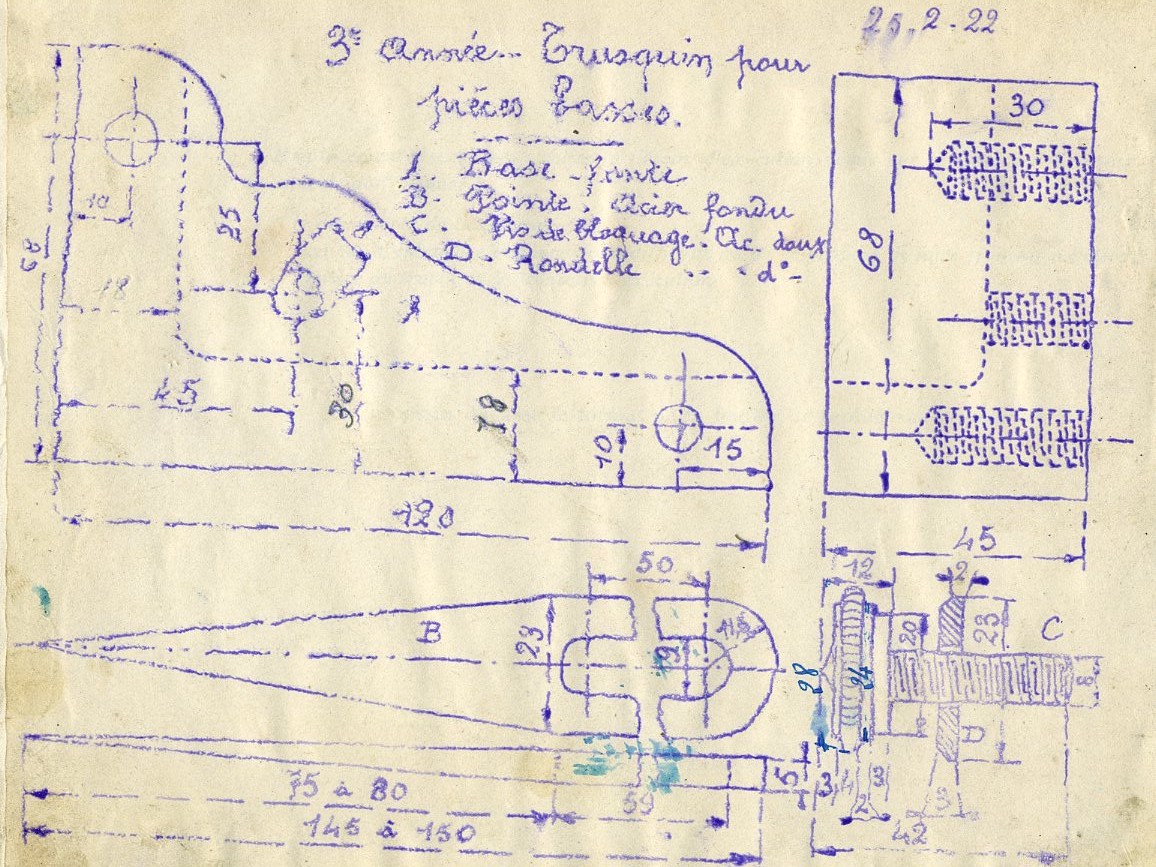 25.2-22
3e Année - Trusquin pour
pièces basses.
1. Base fonte
B- Pointe: Acier fondu
C. Vis de bloquage. Ac. doux
D- Rondelle .. .. d°-
30
10
25
8
68
18
45
30
18
10
15
120
68
45
50
B
23
12
12
2
20
23
C
8
28
24
D
75 à 80
59
145 à 150
5
3
4
2
3
3
42